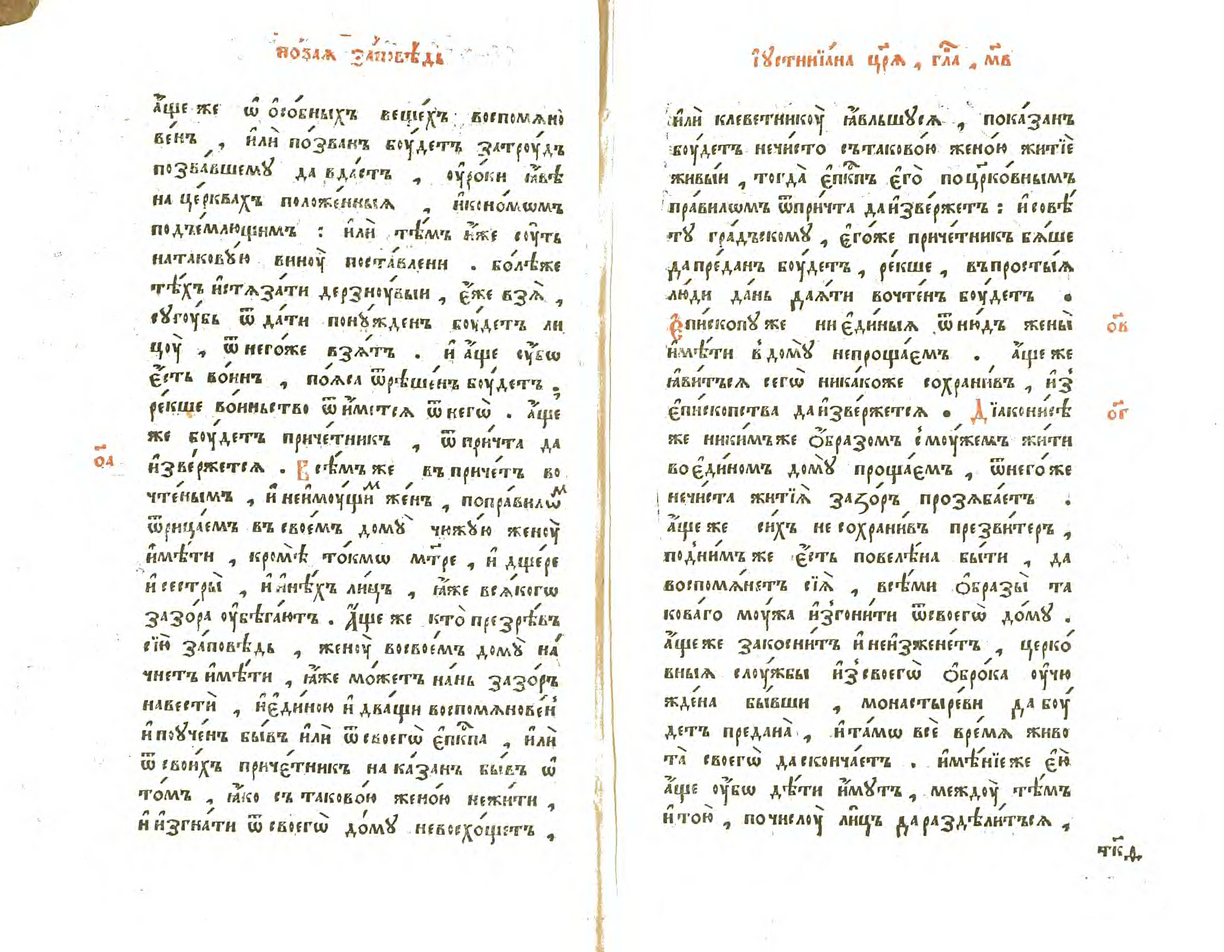 но́ваѧ за́повѣдь
а҆́ще же ѡ҆ ѻ҆со́бныхъ веще́хъ воспомѧно
ве́нъ , и҆лѝ по́званъ бꙋ́детъ затрꙋ́дъ
позва́вшемꙋ да вда́стъ , ᲂу҆ро́ки ꙗ҆́вѣ
на це́рквахъ положе́нныѧ , и҆коно́мѡмъ
под̾е́млющимъ : и҆лѝ тѣ́мъ и҆̀же сꙋ́ть
натакову́ю винꙋ̀ поста́влени . бо́лѣже
тѣ́хъ и҆стѧза́ти дерзнꙋ́выи , є҆́же взѧ̀ ,
сꙋгꙋ́бь ѿ да́ти пону́жденъ бꙋ́детъ ли
цꙋ̀ , ѿ него́же взѧ́тъ . и҆ а҆́ще ᲂу҆́бѡ
є҆́сть во́инъ , по́ѧса ѿрѣше́нъ бꙋ́детъ ,
ре́кше во́иньство ѿ и҆́метсѧ ѿ негѡ̀ . а҆́ще
же бꙋ́детъ приче́тникъ , ѿ при́чта да
и҆зве́ржетсѧ . Всѣ́мъ же въ при́четъ во
ѻ҃а
чте́нымъ , и҆ неимꙋ́щимъ же́нъ , поправилѡ́м
ѿрица́емъ въ свое́мъ домꙋ̀ чюжу́ю женꙋ̀
и҆мѣ́ти , кро́мѣ то́кмѡ мт҃ре , и҆ дще́ре
и҆ сестры̀ , и҆ и҆нѣ́хъ ли́цъ , ꙗ҆́же всѧ́когѡ
зазо́ра ᲂу҆бѣ́гаютъ . А҆́ще же кто̀ презрѣ́въ
сїю̀ за́повѣдь , женꙋ̀ восвое́мъ домꙋ̀ на́
чнетъ и҆мѣ́ти , ꙗ҆́же мо́жетъ на́нь зазо́ръ
навестѝ , и҆ є҆ди́ною и҆ два́щи воспомѧнове́н
и҆ поуче́нъ бы́въ и҆лѝ ѿ своегѡ̀ є҆пк҃па , и҆лѝ
ѿ свои́хъ приче́тникъ нака́занъ бы́въ ѡ҆
то́мъ , ꙗ҆́ко съ тако́вою жено́ю нежи́ти ,
и҆ и҆згна́ти ѿ своегѡ̀ до́мꙋ невосхо́щетъ ,
і҆ᲂустинїа́на цр҃ѧ , гл҃а , м҃в
и҆лѝ клеветникꙋ̀ ꙗ҆́вльшꙋсѧ , пока́занъ
бꙋ́детъ нечи́сто съ тако́вою жено́ю житїѐ
живы́и , тогда̀ є҆пк҃пъ є҆го̀ поцр҃ко́внымъ
пра́вилѡмъ ѿпри́чта да и҆зве́ржетъ : и҆ совѣ́
тꙋ гра́дьскому , є҆го́же приче́тникъ бѧ́ше
да пре́данъ бꙋ́детъ , ре́кше , въ просты́ѧ
лю́ди да́нь даѧ́ти вочте́нъ бꙋ́детъ .
Є҆пи́скопу же ни є҆ди́ныѧ ѿню́дъ жены̀
ѻ҃в
и҆мѣ́ти в дому̀ непроща́емъ . а҆́ще же
ꙗ҆ви́тьсѧ сегѡ̀ ника́коже сохрани́въ , и҆з̾
є҆пи́скопства да и҆зве́ржетсѧ . Дїакони́сѣ
ѻ҃г
же ники́мъже ѻ҆́бразомъ с мꙋ́жемъ жи́ти
во є҆ди́номъ домꙋ̀ проща́емъ , ѿ него́же
нечи́ста житїѧ̀ зазо́ръ прозѧба́етъ .
а҆́ще же си́хъ не сохрани́въ презви́теръ ,
под̾ ни́мъ же є҆́сть повелѣ́на бы́ти , да
воспомѧ́нетъ сїѧ̀ , всѣ́ми ѻ҆́бразы та
кова́го мꙋ́жа и҆згони́ти ѿ своегѡ̀ до́му .
а҆́ще же закосни́тъ и҆ неи҆зжене́тъ , церко́
вныѧ слꙋ́жбы и҆з̾своегѡ̀ ѻ҆бро́ка ᲂу҆чю
жде́на бы́вши , монастыре́ви да бꙋ́
детъ предана̀ , и҆ та́мѡ всѐ вре́мѧ живо
та̀ своегѡ̀ да сконча́етъ . и҆мѣ́нїе же є҆ѝ
а҆́ще ᲂу҆́бѡ дѣ́ти и҆́мутъ , междꙋ̀ тѣ́мъ
и҆ то́ю , по числꙋ̀ ли́цъ да раздѣли́тьсѧ ,
тк҃д